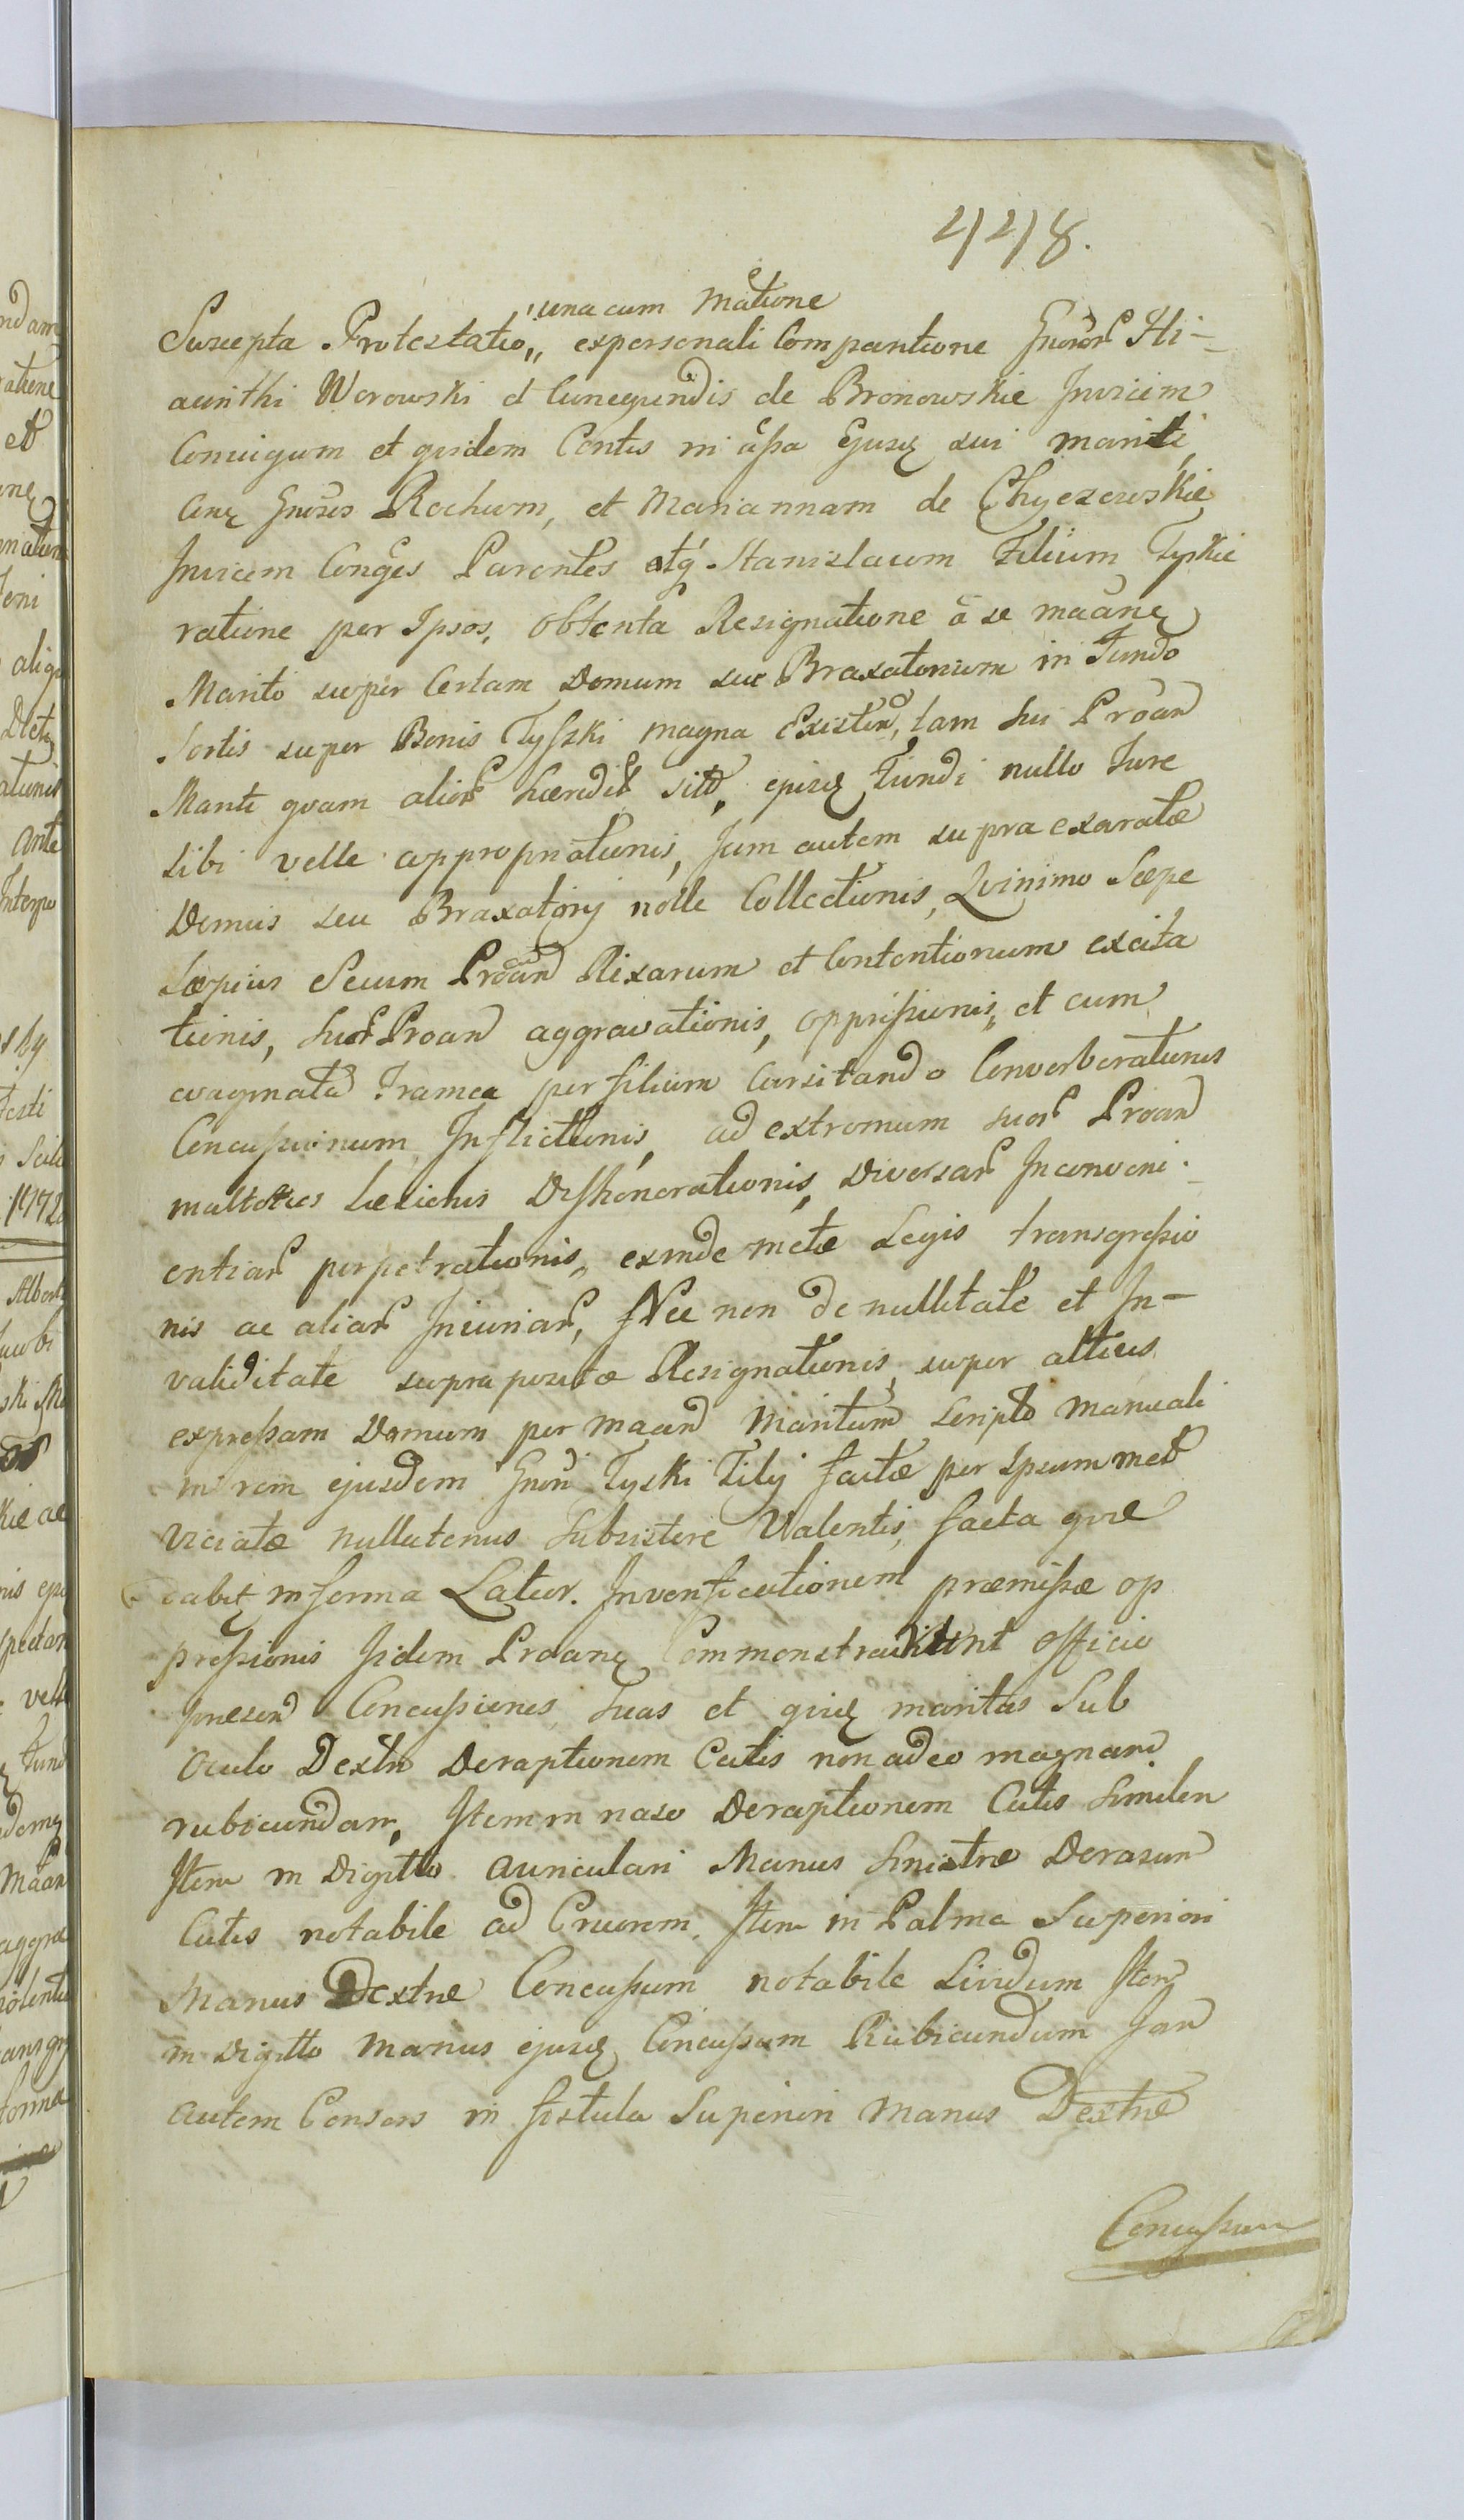 448.
una cum Matione
Suscepta Protestatio,, ex personali Compantione Gnosor Hi-
acinthi Worowski et Cunegundis de Bronowskie Invicem
Coniugum et quidem Contis in assa Ejusq sui mariti
Cinq Gnosos Rochum, et Mariannam de Chyczewskie
Invicem Conges Parentes atq Stanislaum Filium Tyskie
ratione per Ipsos, obtenta Resignatione a se maanq
Marito super Certam Domum seu Braxatorium in Fundo
Sortis super Bonis Tysski magna Existen, tam sui Proan
Mariti quam alior haered sitt, ejusq Fundi nullo Jure
sibi velle appropriationis, Jum autem supra exaratae
Domus seu Braxatorij nolle Collectionis, Quinimo Saepe
Saepius Secum Proan Rixarum et Contentionum excita
tionis, Suor Proan aggravationis, oppressionis, et cum
evaginata Framea per filium Cursitando Converberationis
Concussionum Inflictionis, ad extremum suor Proan
multoties Laesionis Dishonorationis, Diversar Inconveni-
entiar perpetrationis,, exinde metae Legis transgressio
nis ac aliar Iniuriar, Nec non de nullitate et In-
validitate supra positae Resignationis, super altius
expressam Domum per maan Maritum Scripto Manuali
in rem ejusdem Gnosi Tyski Filij factae per Ipsummet
Viciatae nullatenus Subsistere Valentis, facta quae
dabit in forma Latior. In verificationem praemissae op
pressionis Iidem Proanq Commonstraverunt officio
praesen Concussiones, Suas et quisq maritus Sub
oculo Dextro Deraptionem Cutis non adeo magnam
rubicundam, Item in naso Deraptionem Cutis similem
Item in Digitto auriculari Manus Sinistrae Derasum
Cutis notabile ad Cruorem, Item in Palma Superiori
Manus Dextrae Concussum notabile Lividum Item
in Digitto Manus ejusq Concussum Rubicundum Ian
autem Consors in fistula Superiori Manus Dextrae
Concussum